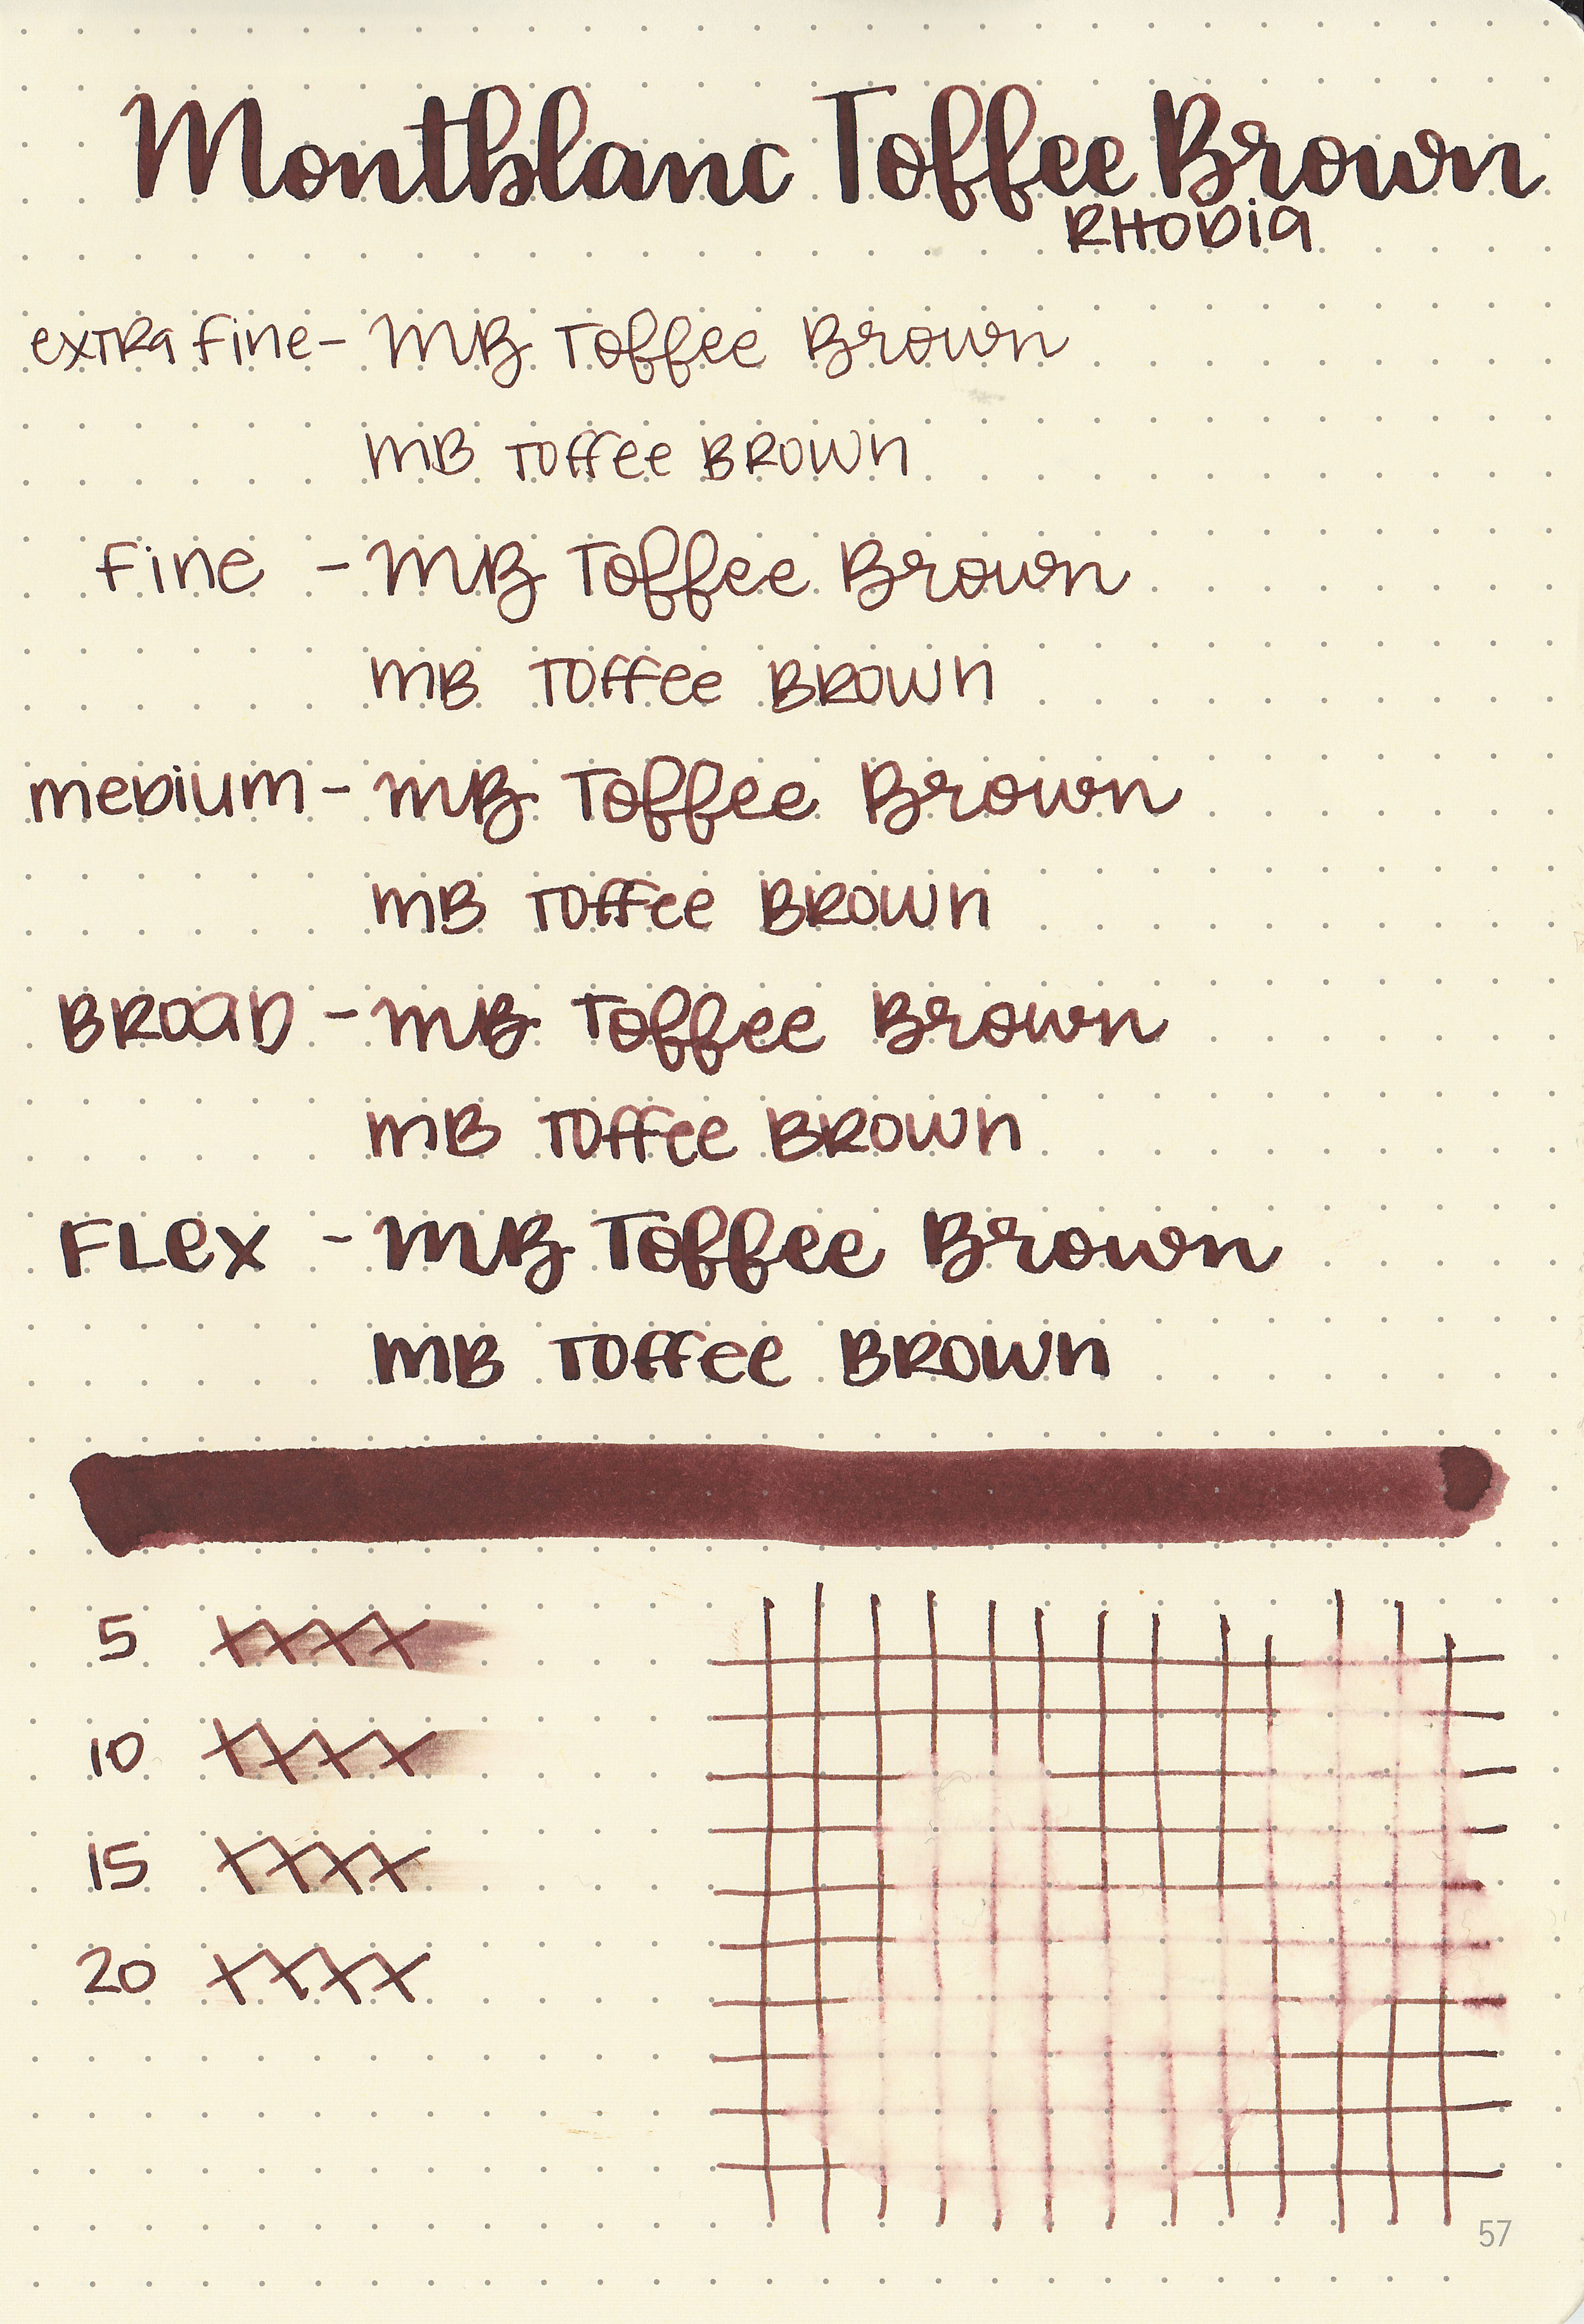 Montblanc Toffee Brown
RHODia
extra fine - MB Toffee Brown
MB Toffee BROWN
fine - MB Toffee Brown
MB Toffee BROWN
medium - MB Toffee Brown
MB Toffee BROWN
BROaD - MB Toffee Brown
MB Toffee BROWN
FLex - MB Toffee Brown
MB Toffee BROWN
5
10
15
20
57